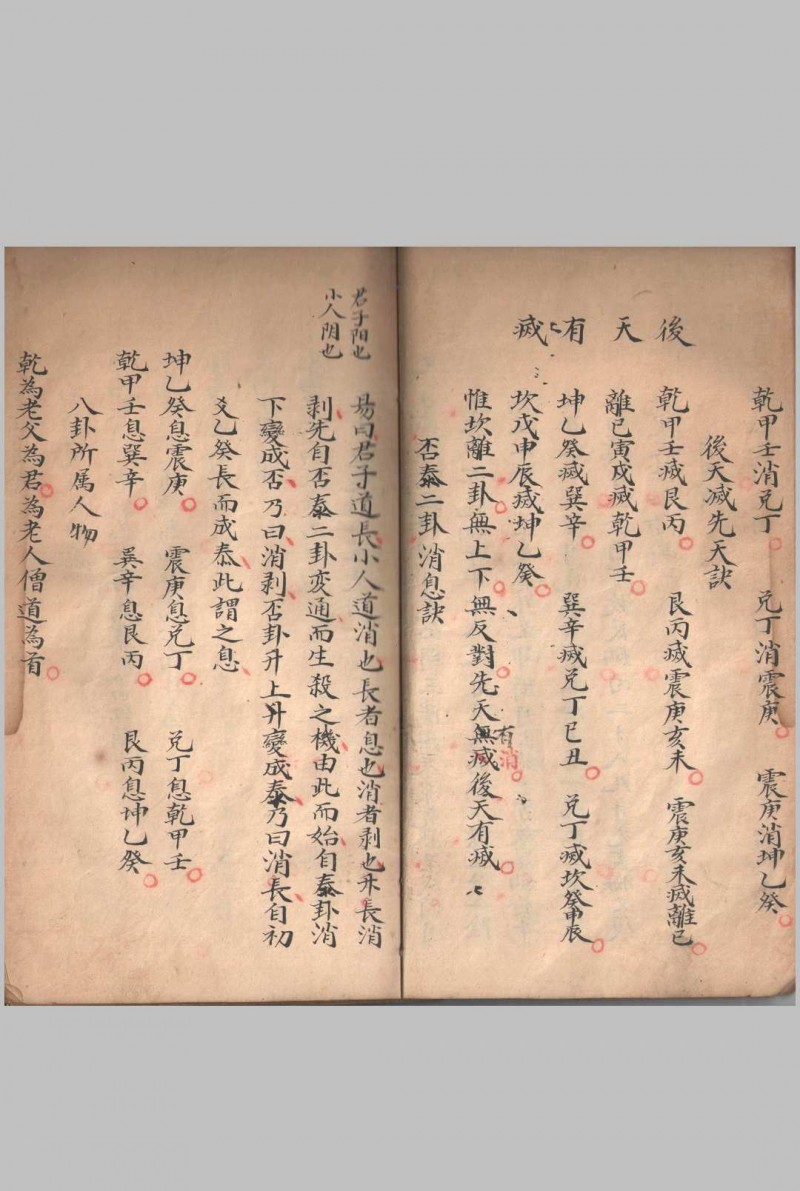 後天有滅
乾甲壬消兌丁　兌丁消震庚　震庚消坤乙癸
後天滅先天訣
乾甲壬滅艮丙　艮丙滅震庚亥未　震庚亥未滅離已
離已寅戌滅乾甲壬
坤乙癸滅巽辛　巽辛滅兌丁巳丑　兌丁滅坎癸申辰
坎戊申辰滅坤乙癸
惟坎離二卦無上下無反對先天無滅後天有滅
有消
否泰二卦消息訣
君子陽也
小人陰也
易曰君子道長小人道消也長者息也消者剥也升長消
剥先自否泰二卦変通而生殺之機由此而始自泰卦消
下變成否乃曰消剥否卦升上升變成泰乃曰消長自初
爻乙癸長而成泰此謂之息
坤乙癸息震庚　震庚息兌丁　兌丁息乾甲壬
乾甲壬息巽辛　巽辛息艮丙　艮丙息坤乙癸
八卦所属人物
乾為老父為君為老人僧道為首